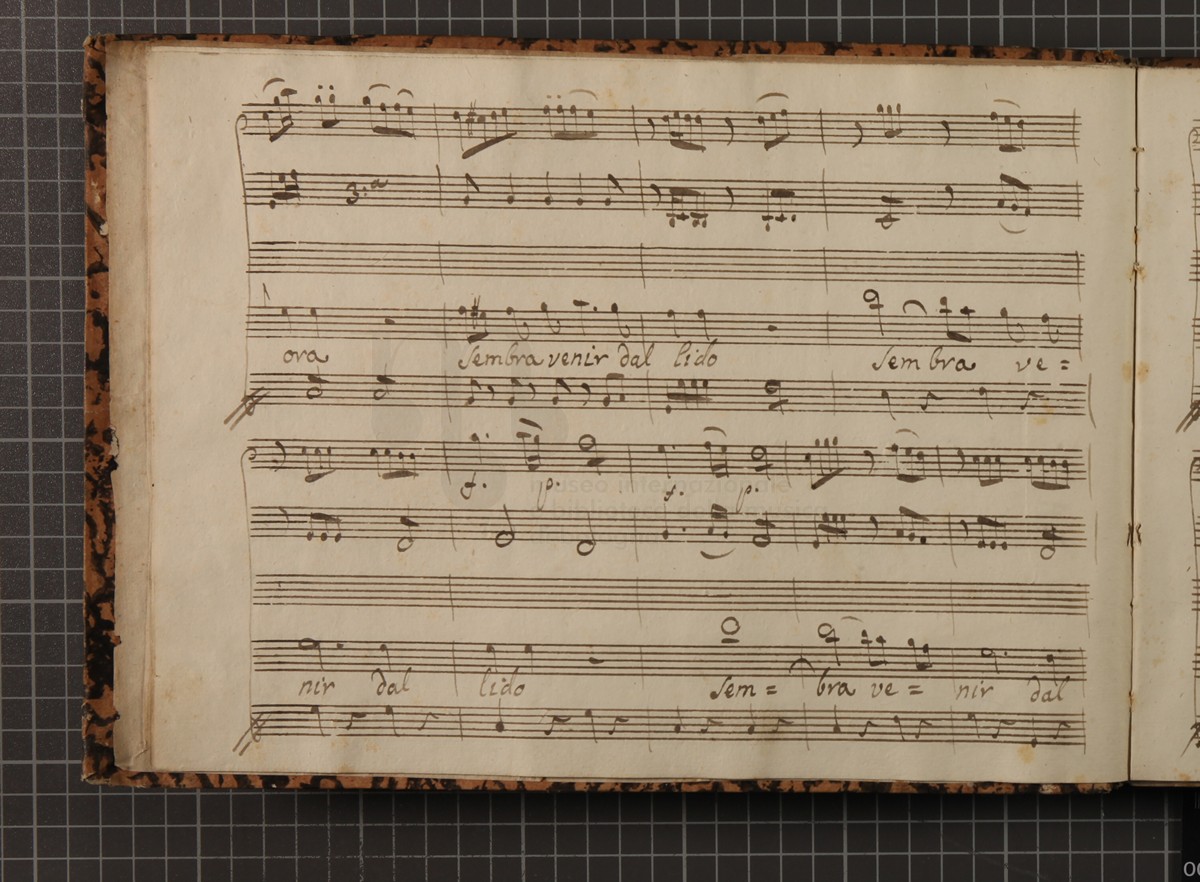 3.a
ora Sembra venir dal lido sembra ve=
f. p. f. p.
museo internazionale
biblioteca della musica
nir dal lido sem= bra ve= nir dal